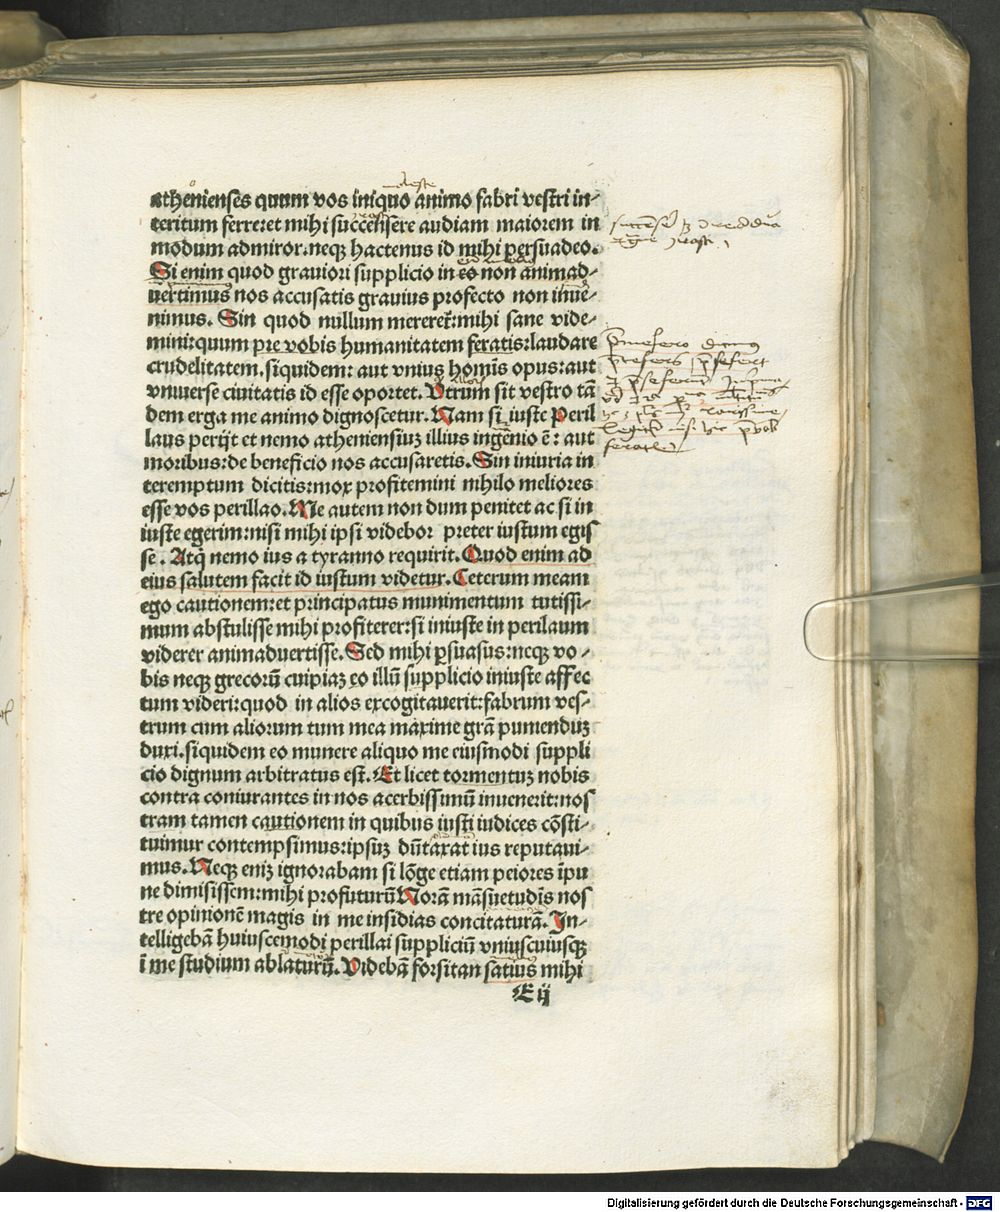 athenienses quum vos iniquo animo fabri vestri in⸗
teritum ferre:et mihi succensere audiam maiorem in
modum admiror.neqꝫ hactenus id mihi persuadeo.
Si enim quod grauiori supplicio in eo non animad⸗
uertimus nos accusatis grauius profecto non inue⸗
nimus. Sin quod nullum mereret̃:mihi sane vide⸗
mini:quum pre vobis humanitatem feratis:laudare
crudelitatem.siquidem: aut vnius homīs opus:aut
vnuerse ciuitatis id esse oportet. Utrum sit vestro tā
dem erga me animo dignoscetur. Nam si iuste Peril
laus perijt et nemo atheniensiuꝫ illius ingenio ē: aut
moribus:de beneficio nos accusaretis. Sin iniuria in
teremptum dicitis:mox profitemini nihilo meliores
esse vos perillao. Me autem non dum penitet ac si in
iuste egerim:nisi mihi ipsi videbor preter iustum egis
se. Atq̄ nemo ius a tyranno requirit. Quod enim ad
eius salutem facit id iustum videtur. Ceterum meam
ego cautionem:et principatus munimentum tutissi⸗
mum abstulisse mihi profiterer:si iniuste in perilaum
viderer animaduertisse. Sed mihi ꝑsuasus:neqꝫ vo⸗
bis neqꝫ grecorū cuipiaꝫ eo illū supplicio iniuste affec
tum videri:quod in alios excogitauerit:fabrum ves⸗
trum cum aliorum tum mea maxime grā punienduꝫ
duxi.siquidem eo munere aliquo me eiusmodi suppli
cio dignum arbitratus est. Et licet tormentuꝫ nobis
contra coniurantes in nos acerbissimū inuenerit:nos
tram tamen cautionem in quibus iusti iudices cōsti⸗
tuimur contempsimus:ipsuꝫ dūtaxat ius reputaui⸗
mus. Neqꝫ eniꝫ ignorabam si lōge etiam peiores īpu
ne dimisissem:mihi profuturū Morā māsuetudīs nos
tre opinionē magis in me insidias concitaturā. In⸗
telligebā huiuscemodi perillai suppliciū vniuscuiusqꝫ
ī me studium ablaturū. Videbā forsitan satius mihi
E ij
Digitalisierung gefördert durch die Deutsche Forschungsgemeinschaft - DFG